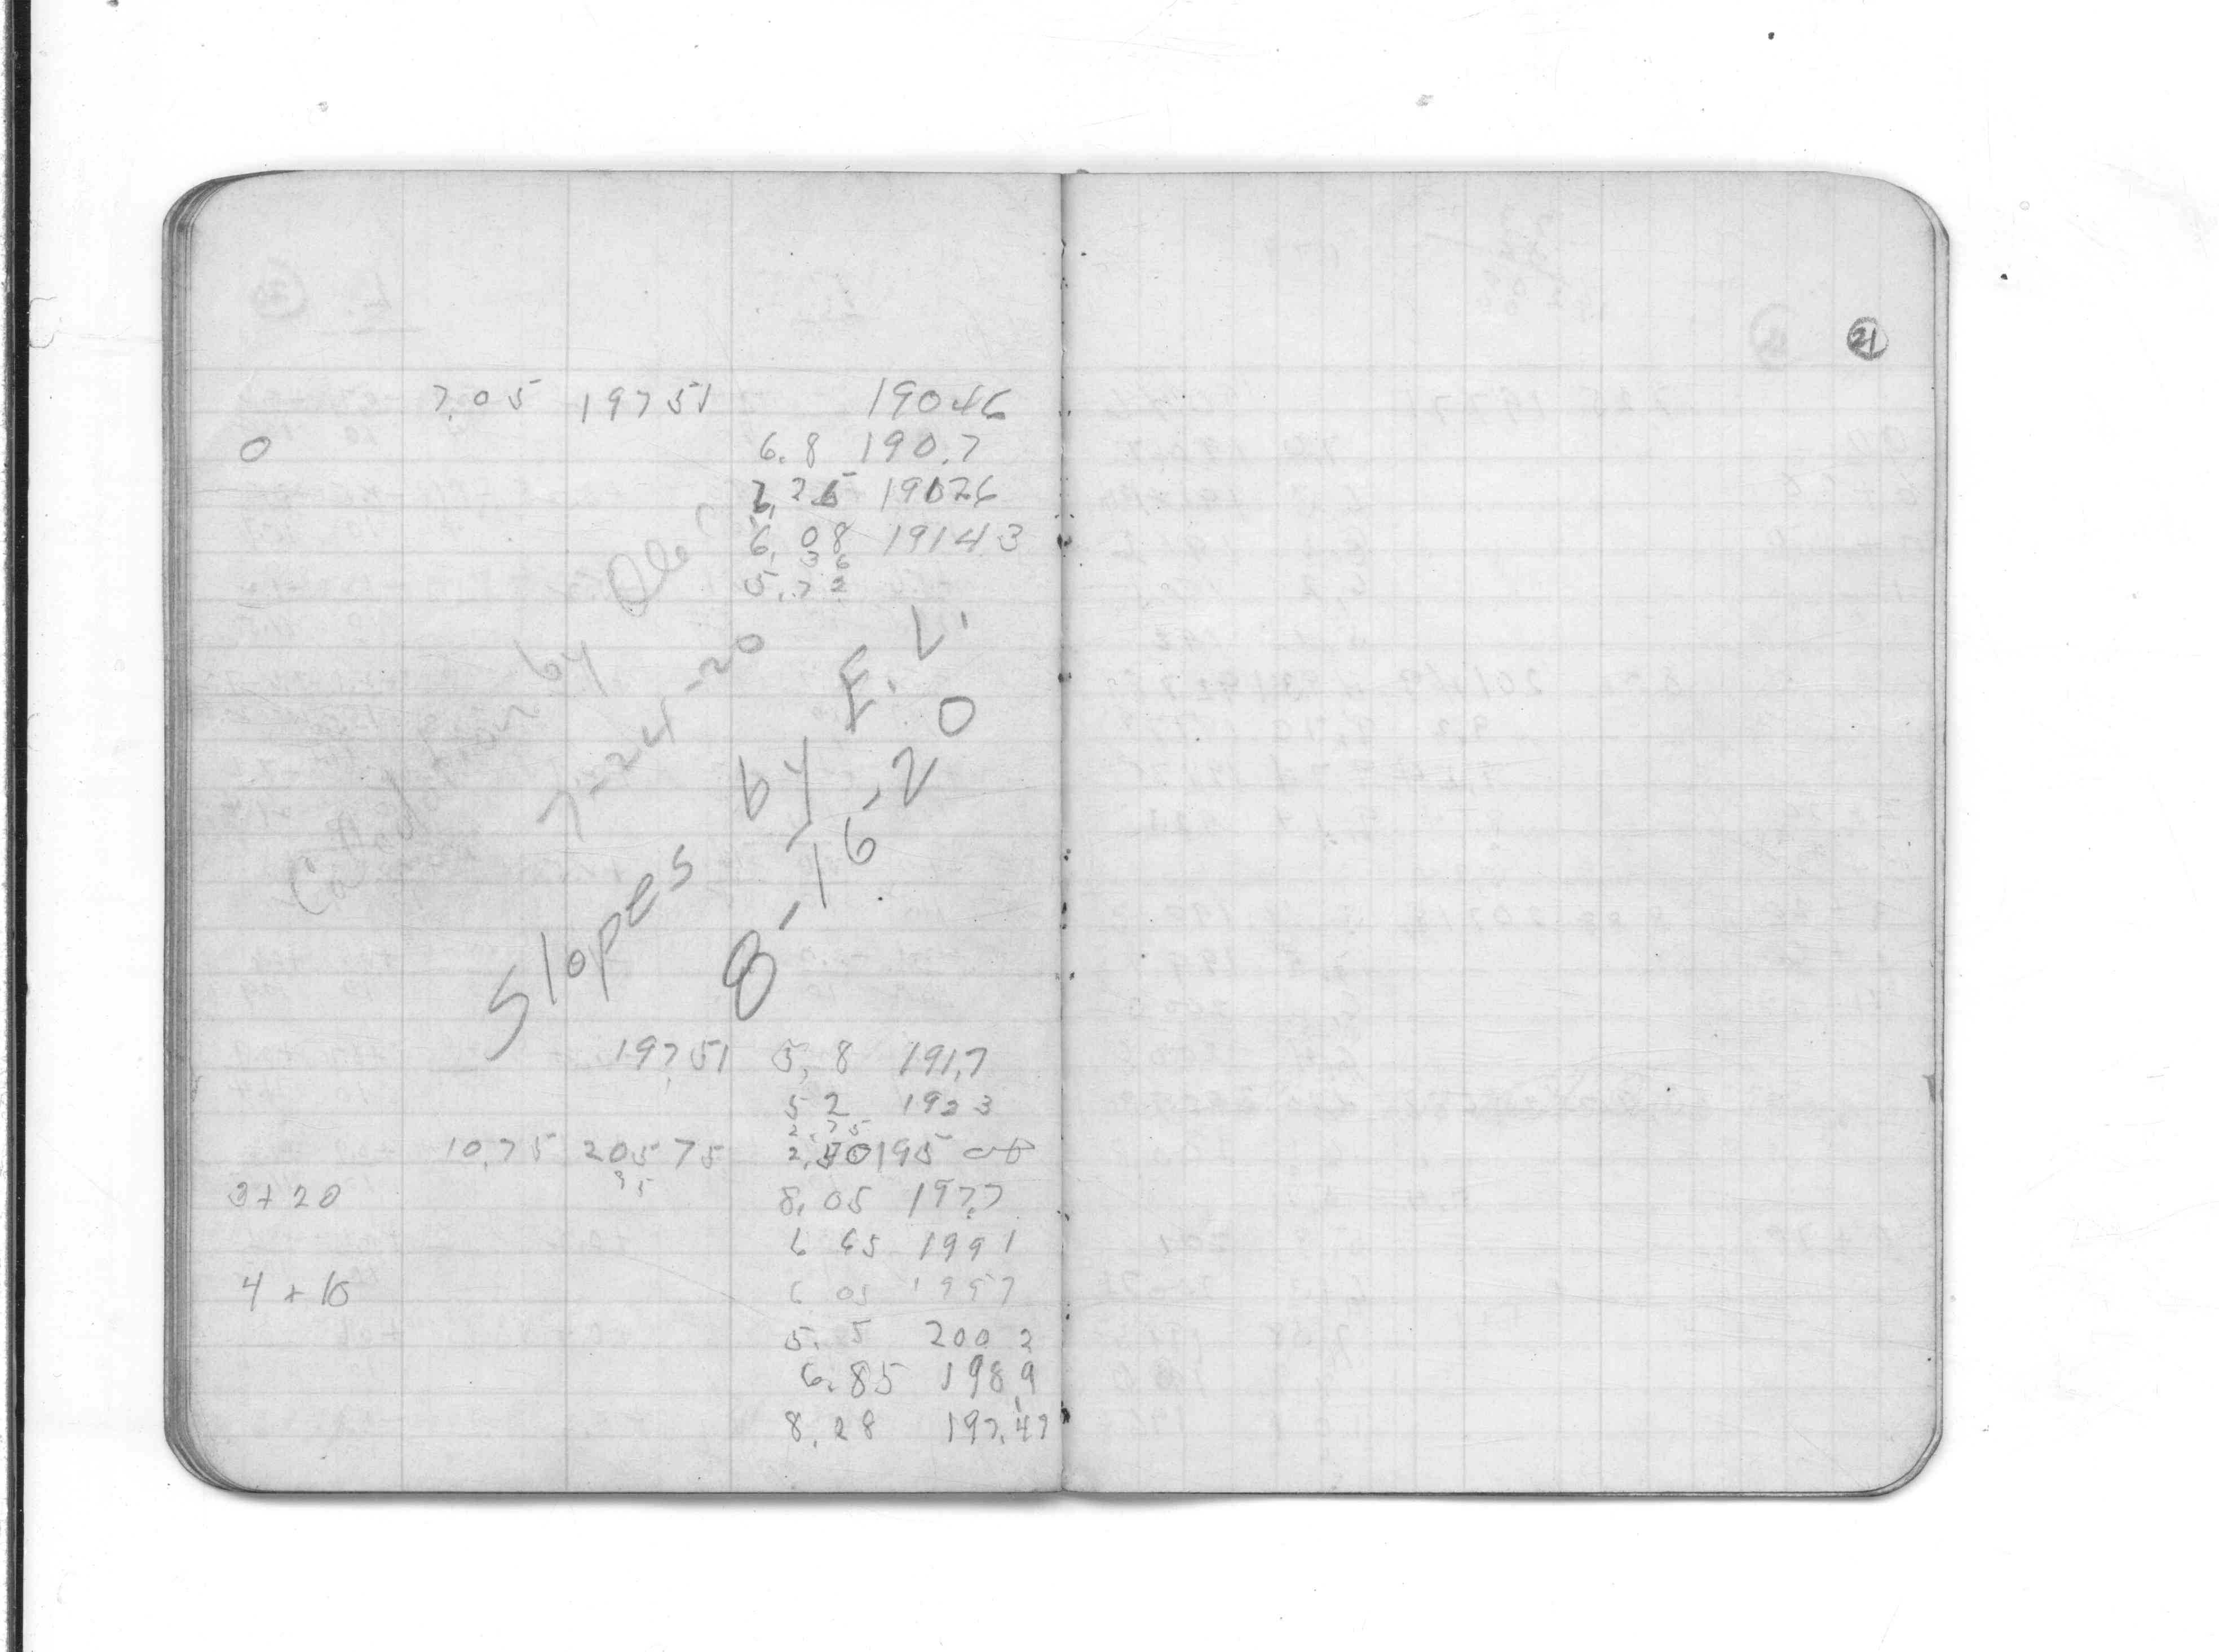 21
7.05 19751 19046
0 6.8 190.7
7.25 19026
6.08 19143
36
5.72
by
7-24-20
Slopes by E. L.
8-16-20
19751 5.8 191.7
52 1923
2.75
10.75 20575 195
35
3+20 8.05 197.7
6 65 1991
4+10 6 05 1997
5.5 200 2
6.85 198.9
8.28 197.47